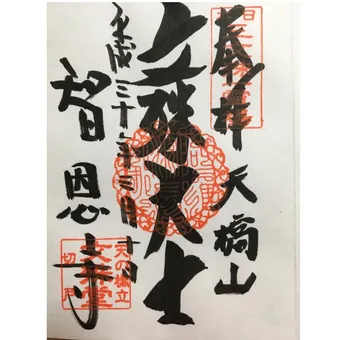 奉拝
天橋山
文殊大士
平成三十年三月十日
智恩寺
天の橋立
文殊堂
切戸